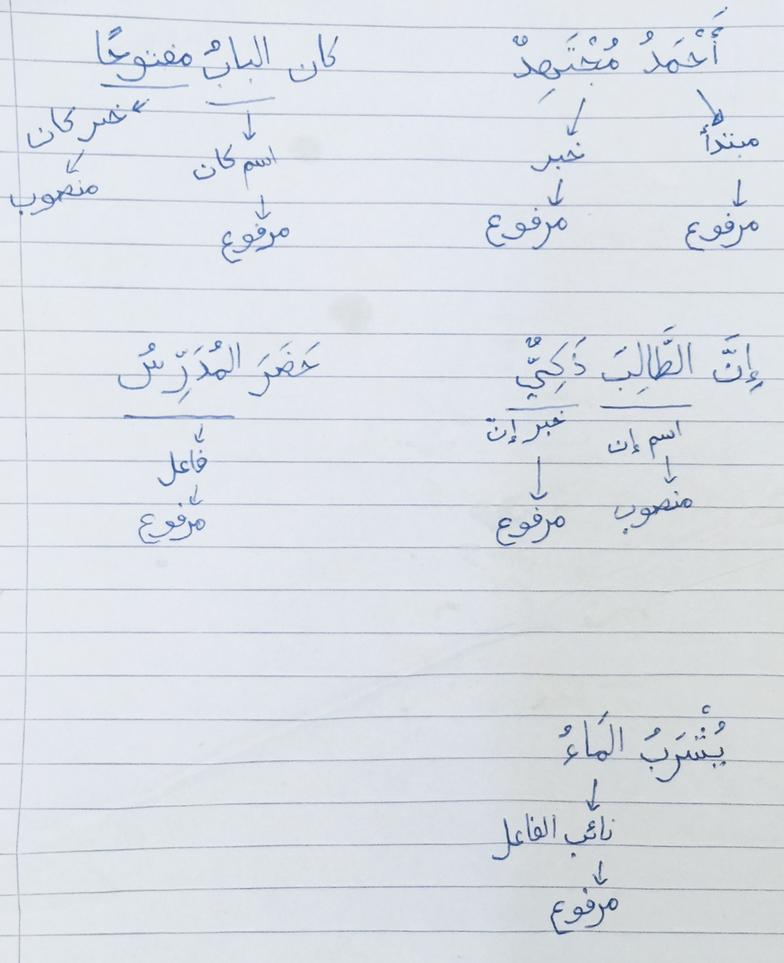 أَحْمَدُ مُجْتَهِدٌ
مبتدأ خبر
مرفوع مرفوع
كان البابُ مفتوحًا
اسم كان خبر كان
مرفوع منصوب
إِنَّ الطَّالِبَ ذَكِيٌّ
اسم إن خبر إنّ
منصوب مرفوع
حَضَرَ المُدَرِّسُ
فاعل
مرفوع
يُشْرَبُ المَاءُ
نائب الفاعل
مرفوع